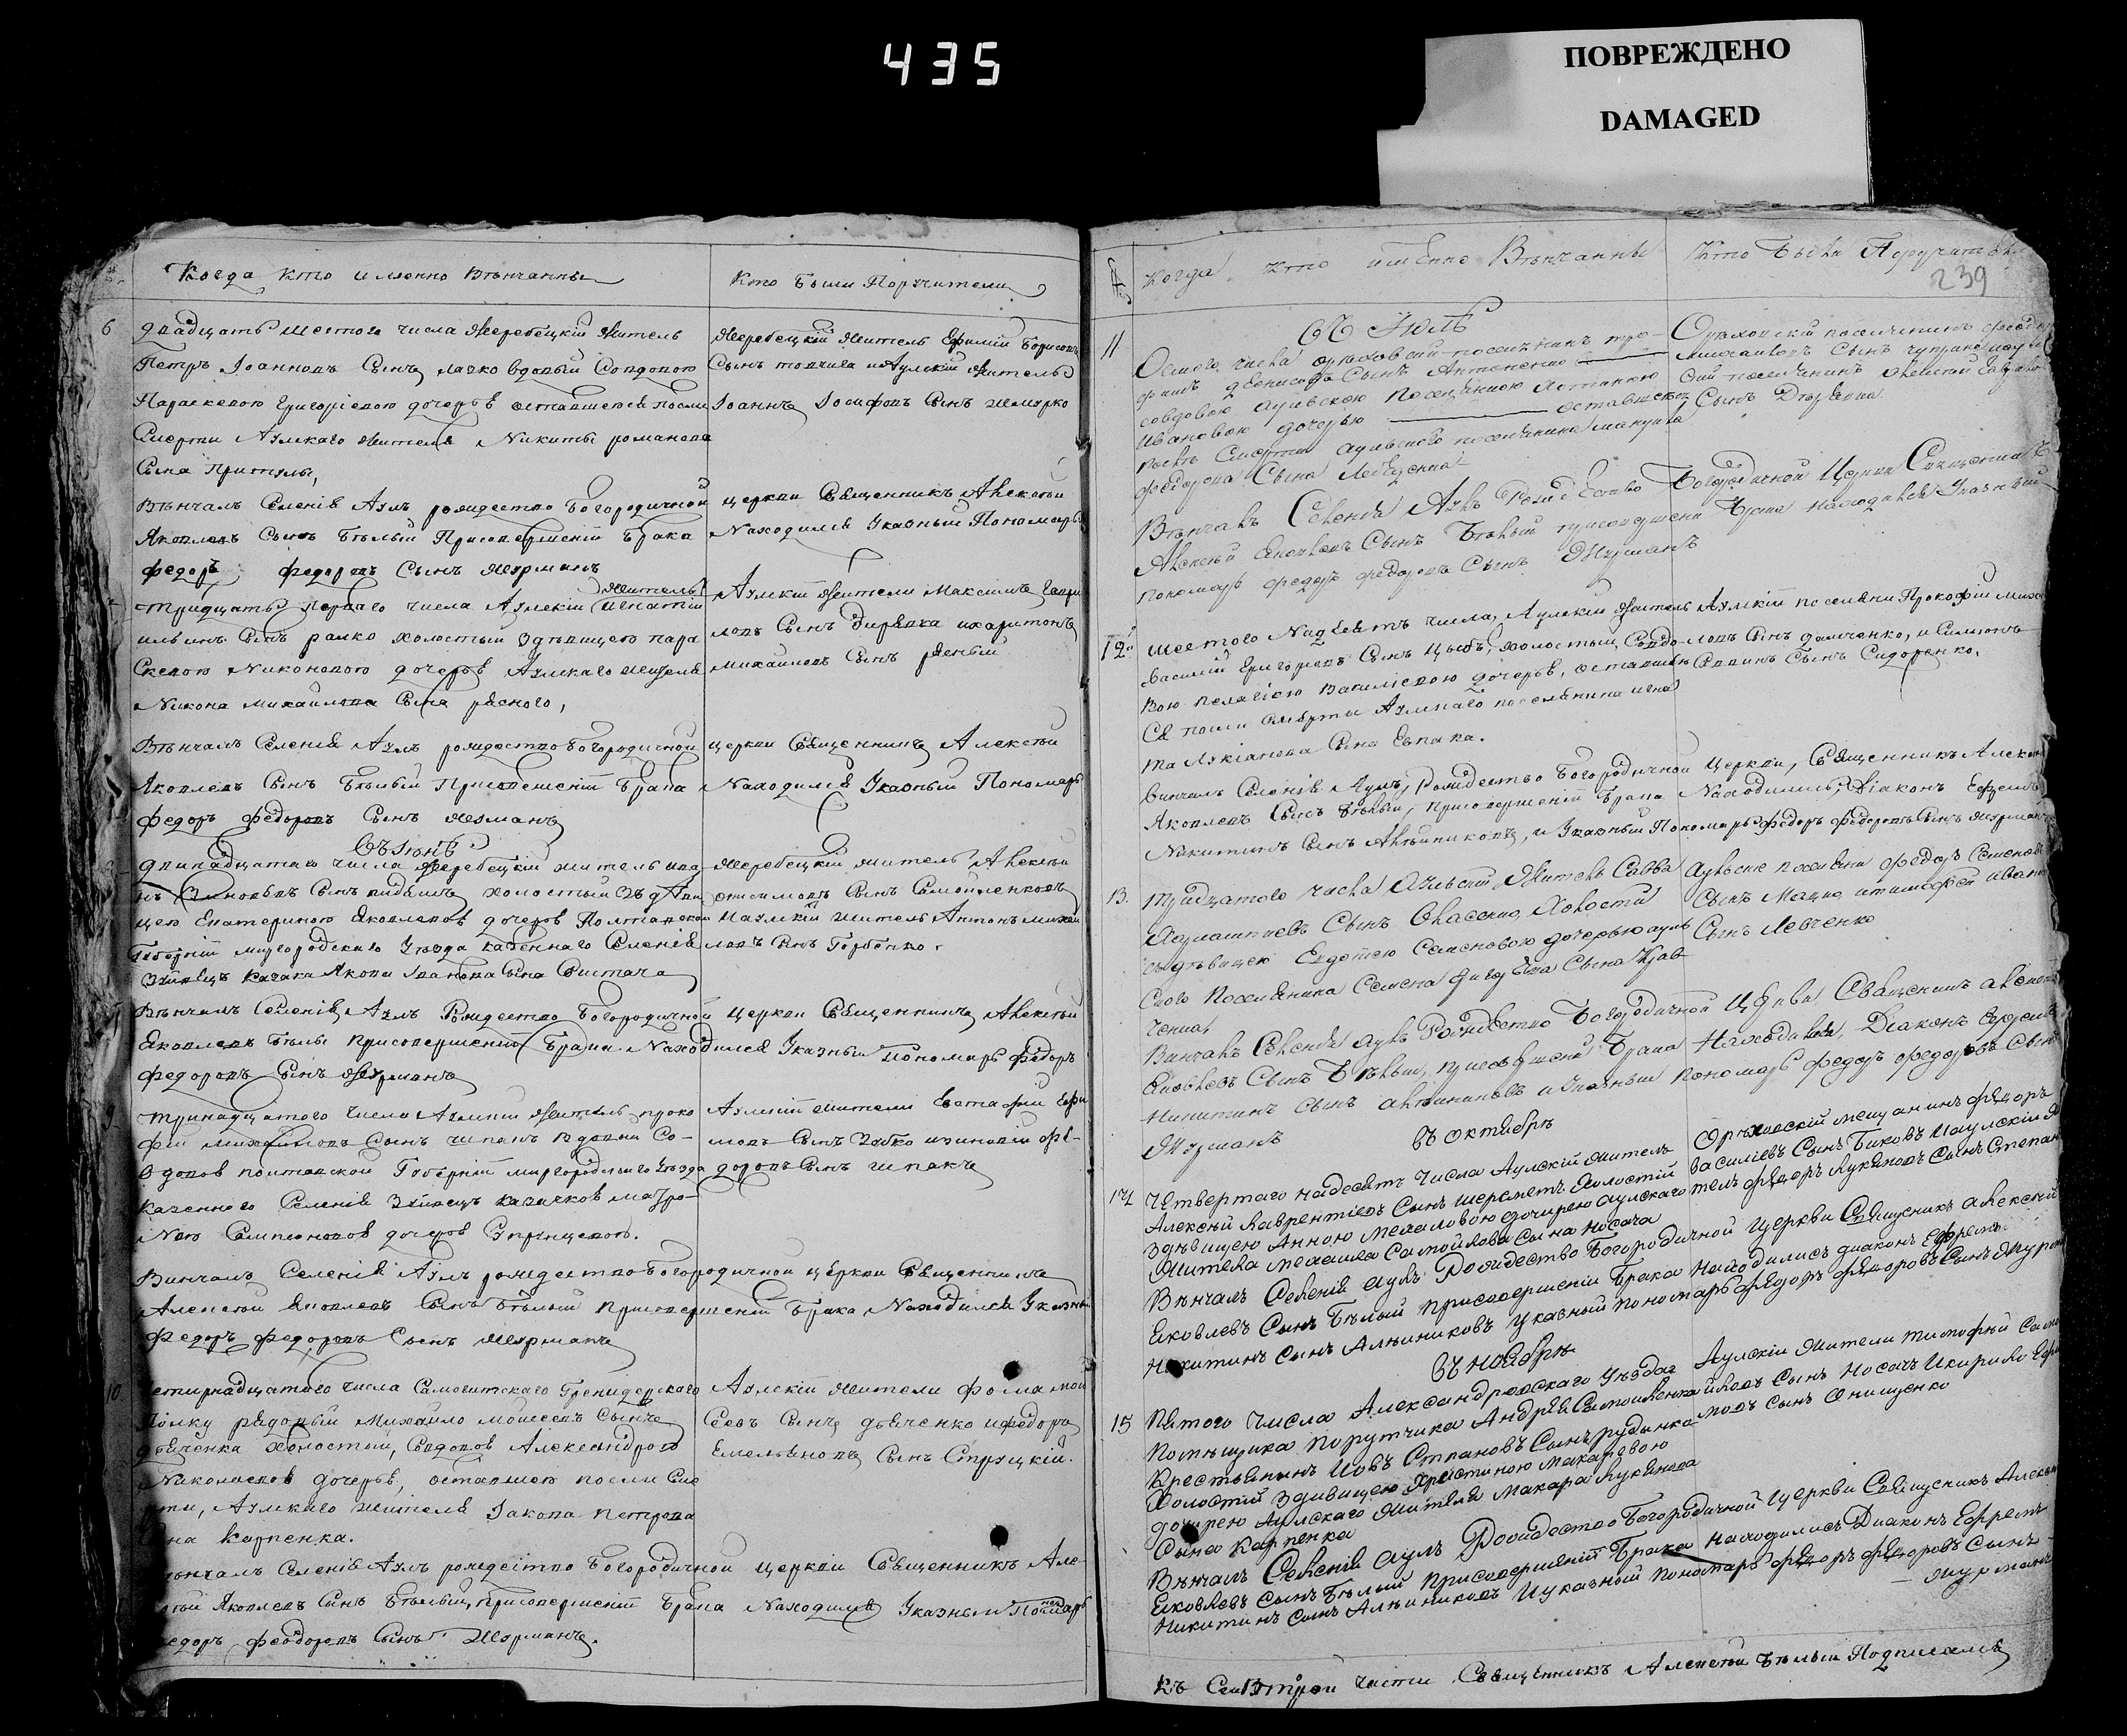 435
ПОВРЕЖДЕНО
DAMAGED
Когда кто именно Вѣнчанны
Кто были Поручители
6
двадцать шестого числа Жеребецкій житель
Петръ Іоанновъ Сынъ вдовый Совдовою
Параскевою Григоріевою дочерью оставшеюся посли
Смерти Аулскаго жителя Никиты романова
Сына Притулы,
Жеребецкій житель Ефимій Борисовъ
Сынъ товчига и Аулскій житель
Іоаннъ Іосифовъ Сынъ шемурко
Вѣнчалъ Селенія Аулъ рождество Богородичной церкви Священникъ Алексѣй
Яковлевъ Сынъ Бѣлый Присовершеніи Брака Находился Указный Пономарь
федоръ федоровъ Сынъ Журманъ
тридцать перваго числа Аулскій житель игнатій
ильинъ Сынъ холостый Здѣвицею пара
Скевою Никоновою дочерью Аулскаго жителя
Никона михайлова Сына ряеного,
Аулскіи жители Максимъ Гаври
ловъ Сынъ дирявка ихаритонъ
михайловъ Сынъ
Вѣнчалъ Селенія Аулъ рождество Богородичной церкви Священникъ Алексѣй
Яковлевъ Сынъ Бѣлый Присовершеніи Брака Находился Указный Пономарь
федоръ федоровъ Сынъ Журманъ
въ іюнѣ
двинадцатаго числа Жеребецкій житель ива
нъ Зиновьевъ Сынъ холостый Здѣви
цею Екатериною Яковлевою дочерью Полтавской
Губерніи миргородскаго Уѣзда казеннаго Селенія
Зуивецъ казака Якова Іванова Сына
Жеребецкій житель Алексѣй
онисимовъ Сынъ Самойленковъ
И аулскій житель Антонъ михай
ловъ Сынъ Горбенко.
Вѣнчалъ Селенія Аулъ Рождество Богородичной церкви Священникъ Алексѣй
Яковлевъ Бѣлый Присовершеніи Брака Находился Указный Пономарь федоръ
федоровъ Сынъ Журманъ
9
тринадцатого числа Аулскій житель проко
фій михайловъ Сынъ чипакъ вдовый Со-
вдовою полтавской Губерніи миргородскаго Уѣзда
казенного Селенія Зуивецъ казачкою матро-
Ною дочерью
Аулскіи жители Евстафій Ефи
мовъ Сынъ Зубко изиновій фе-
доровъ Сынъ шпакъ
Винчалъ Селенія Аулъ рождество Богородичной церкви Священникъ
Алексѣй Яковлевъ Сынъ Бѣлый Присовершеніи Брака Находился Указный
федоръ федоровъ Сынъ Журманъ
10
четирнадцатого числа Самогитскаго Гренадерского
Полку рядовый Михайло мойсеевъ Сынъ
дяченко Холостый, Совдовою Александрою
Николаевою дочерью, оставшею посли Сме
рти, Аулскаго жителя Іакова петрова
Сына Карпенка.
Аулскіи жители фома мои
Сеевъ Сынъ дяченко ифедоръ
Емельяновъ Сынъ Струцкій.
Вѣнчалъ Селенія Аулъ рождество Богородичной церкви Священникъ Але-
ксѣй Яковлевъ Сынъ Бѣлый, Присовершеніи Брака Находился Указный Пономарь
федоръ феодоровъ Сынъ Журманъ.
№
Когда кто именно Вѣнчанны
Кто Были Поручители
239
въ Іюлѣ
11
Осмого числа орѣховскій поселянинъ тро-
фимъ денисовъ Сынъ Антоненко
совдовою аулскою поселянкою
Ивановою дочерью оставшеюся
послѣ Смерти аульского поселянина
федорова Сына
Орѣховскій поселянинъ феодоръ
Сынъ чуприна и аул
скій поселянинъ
Сынъ Дырявка
Вѣнчалъ Селенія Аулъ Рождество Богородичной Церкви Священникъ
Алексѣй Яковлевъ Сынъ Бѣлый присовершеніи Брака находился Указный
пономарь федоръ федоровъ Сынъ Журманъ
12
шестого Надеять числа, Аулскій житель
василій Григоревъ Сынъ Цыбъ, холостый, Совдо
вою пелагіею Василіевою дочерью, оставшею
Ся посли Смерти Аулскаго поселянина игна
та Лукіанова Сына Евпака.
Аулскіи поселяни Прокофій миха
ловъ Сынъ дамченко, и Симеонъ
Савинъ Сынъ Сидоренко.
Винчалъ Селенія Аулъ, Рождество Богородичной Церкви, Священникъ Алексѣй
Яковлевъ Сынъ Бѣлый, присовершеніи Брака Находились, Діаконъ Ефремъ
Никитинъ Сынъ Алѣйниковъ, и Указный Пономарь федоръ федоровъ Сынъ Журманъ
13.
тридцатого числа Аульскій Житель Савва
Харлампіевъ Сынъ Власенко, Холостій
здѣвицею Евдокіею Семеновою дочерью ауль
ского Поселянина Семена Сына Крав
ченка,
Аульскіе поселяни федоръ Семеновъ
Сынъ Мацко, итимофей Ивано
Сынъ Левченко
Винчалъ Селенія Аулъ Рождество Богородичной Церкви, Священникъ алексѣй
Яковлевъ Сынъ Бѣлый, присовершеніи Брака Находились, Діаконъ Ефремъ
Никитинъ Сынъ алѣйниковъ и Указный пономарь федоръ федоровъ Сынъ
Журманъ
Въ октябрѣ
14
Четвертаго надесять Числа Аулскій житель
Алексѣй Лаврентіевъ Сынъ шереметъ Холостій
Здѣвицею Анною Михаловою дочирею аулскаго
Жителя Михаила Самойлова Сына Носача
Орѣховскій мещанинъ федоръ
василіевъ Сынъ Биковъ И аулскій жи
тель федоръ Лукяновъ Сынъ Степан
Вѣнчалъ Селенія аулъ Рождество Богородичной Церкви Священникъ алексѣй
Яковлевъ Сынъ Бѣлый присовершеніи Брака Находились диаконъ Ефремъ
Никитинъ Сынъ Алѣйниковъ Указный пономарь федоръ федоровъ Сынъ Журман
Въ ноябрѣ
15
Пятого числа Александровскаго Уѣзда
помѣщика порутчика Андрея Самойленка
Крестьянинъ Иовъ Степановъ Сынъ рудинка
Холостій Здивицею Христиною Макаровою
дочирею Аулскаго жителя Макара Лукянова
Сына Карпенка
Аулскіи жители тимофѣй Само
йловъ Сынъ Носачъ Икирило Ефи
мовъ Сынъ Онищенко
Вѣнчалъ Селенія аулъ Рождество Богородичной Церкви Священникъ Алексѣй
Яковлевъ Сынъ Бѣлый присовершеніи Брака Находились Диаконъ Ефремъ
Никитинъ Сынъ Алѣйниковъ И указный пономарь федоръ федоровъ Сынъ
Журманъ
Къ Сей второй части Священникъ Алексѣй Бѣлый Подписался